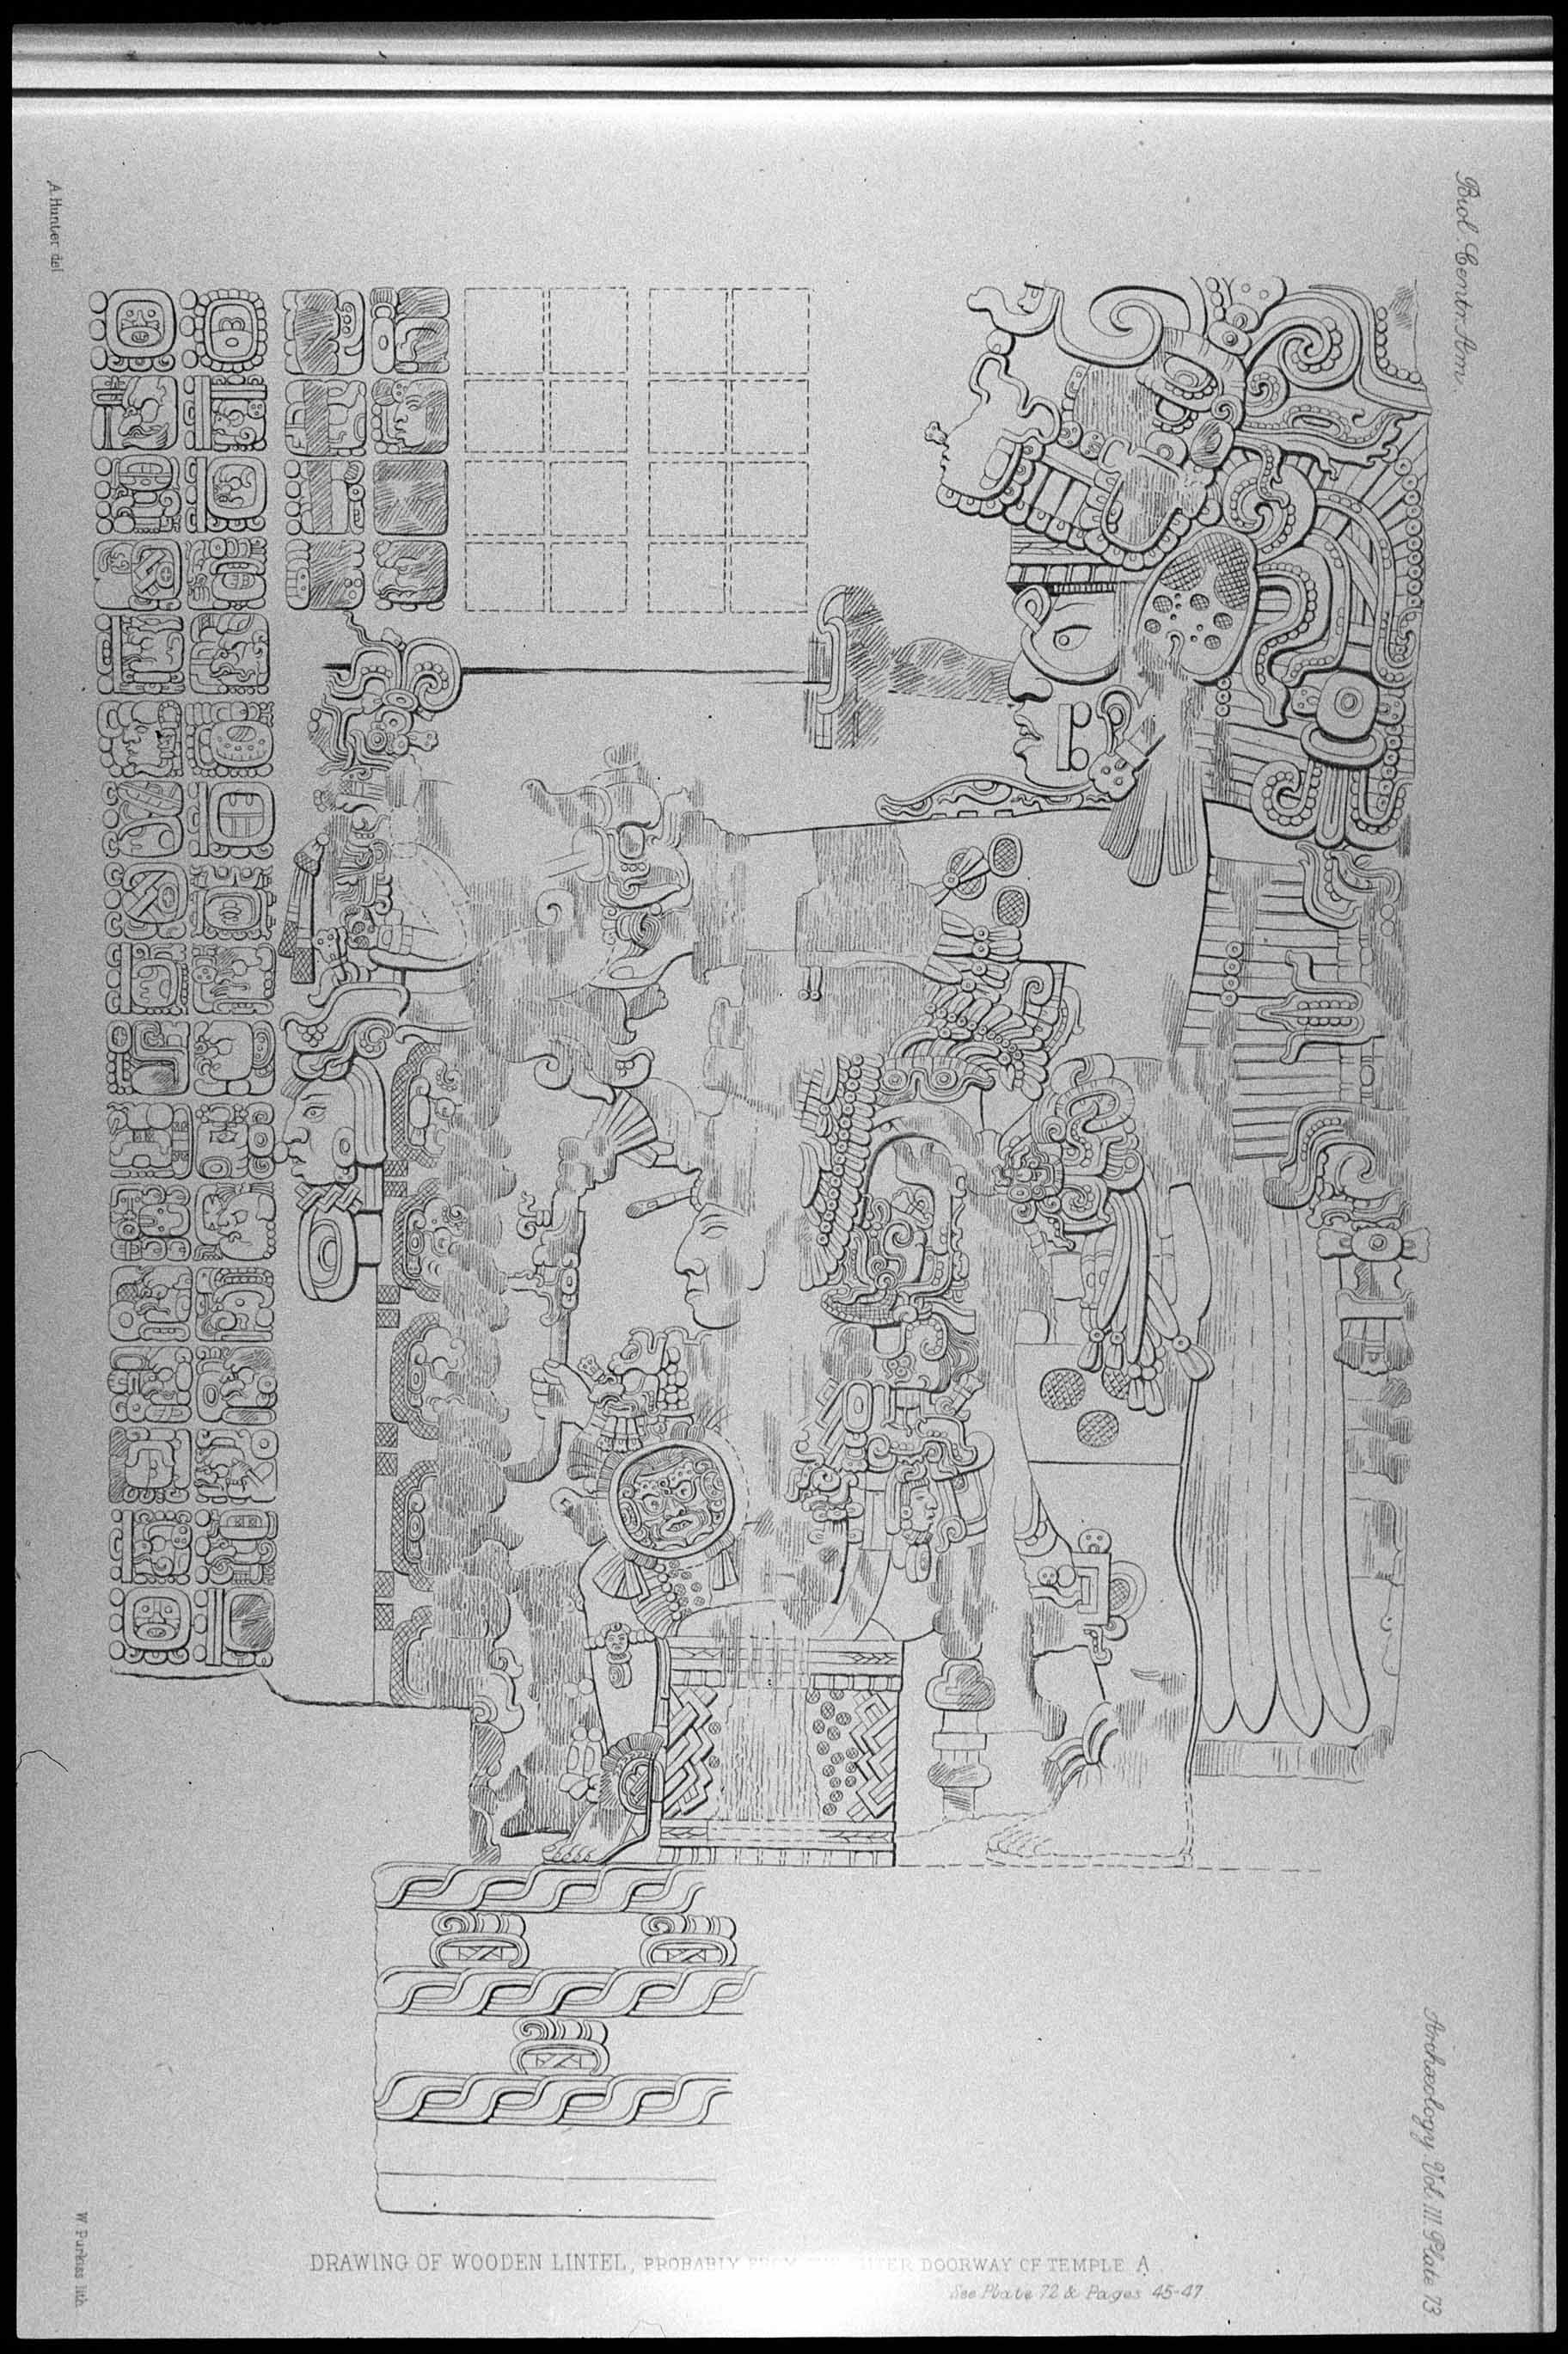 Biol. Centr. Am.
A. Hunter del
Archæology. Vol. III. Plate 73
W. Purkiss lith
DRAWING OF WOODEN LINTEL, PROBABLY DOORWAY OF TEMPLE A
See Plate 72 & Pages 45-47